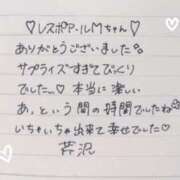 ♡レスポアールMちゃん♡
ありがとうございました
サプライズすぎてびっくり
でした...♡本当に楽し
い、あっという間の時間でしたね
いちゃいちゃ出来て幸せでした♡
芹沢